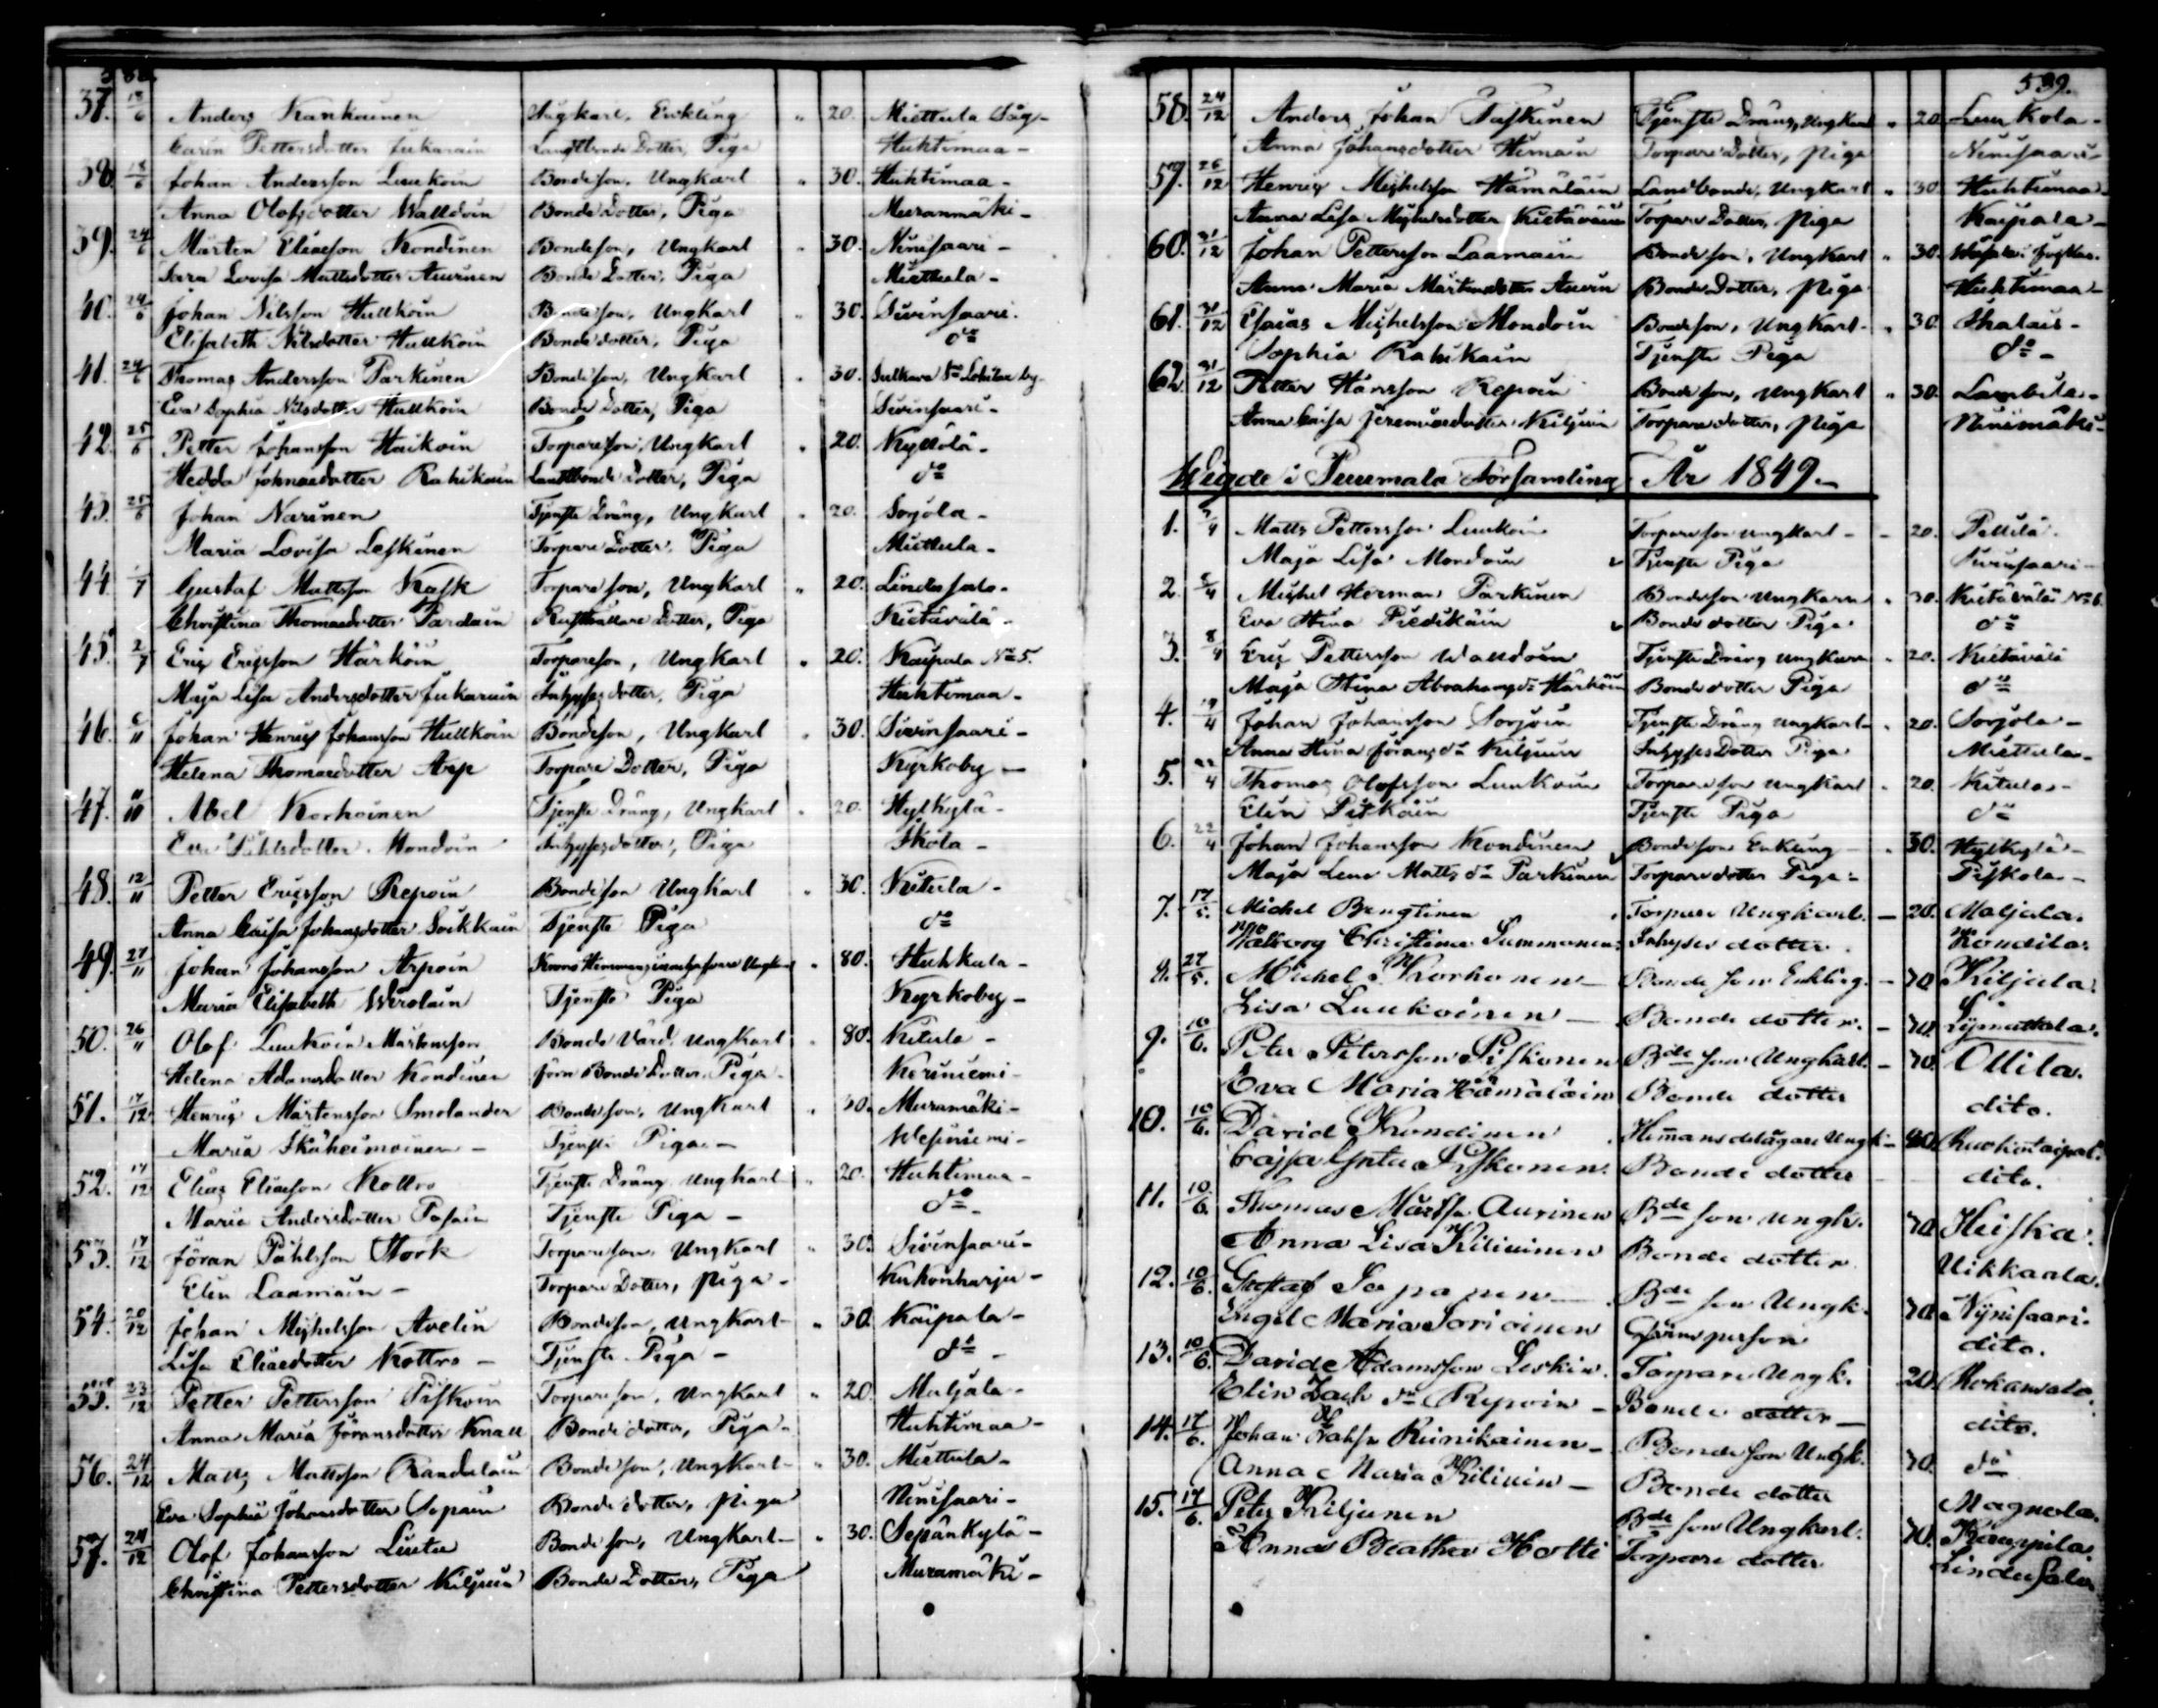 37. 18/6 Anders Kankainen Sågkarl, Enkling " 20. Miettula Såg-
Carin Pettersdotter Jukarain Landtbonde Dotter, Piga Huhtimaa-
38. 18/6 Johan Andersson Luukoin Bondeson, Ungkarl " 30. Huhtimaa-
Anna Olofsdotter Walldoin Bonde Dotter, Piga Muranmäki-
39. 24/6 Mårten Eliaeson Kondinen Bondeson, Ungkarl " 30. Ninisaari-
Sara Lovisa Mattsdotter Auvinen Bonde Dotter, Piga Miettula-
40. 24/6 Johan Nilsson Hullkoin Bondeson, Ungkarl " 30. Sivinsaari.
Elisabeth Nilsdotter Hullkoin Bondedotter, Piga do
41. 24/6 Thomas Andersson Parkinen Bondeson, Ungkarl " 30. Sulkava Sn by-
Eva Sophia Nilsdotter Hullkoin Bonde Dotter, Piga Sivinsaari-
42. 25/6 Petter Johansson Haikoin Torpareson, Ungkarl " 20. Kyllölä-
Hedda Johnaedotter Rahikain Landtbonde Dotter, Piga do
43. 25/6 Johan Narinen Tjenste Dräng, Ungkarl " 20. Sorjola-
Maria Lovisa Leskinen Torpare Dotter, Piga Miettula-
44. /7 Gustaf Mattsson Kask Torpareson, Ungkarl " 20. Lindusalo-
Christina Thomaedotter Pardain Rusthållare Dotter, Piga Kietävälä-
45. 2/7 Eric Ericsson Härköin Torpareson, Ungkarl " 20. Kaipala No 5.
Maja Lisa Andersdotter Jukarain Inhysesdotter, Piga Huhtimaa-
46. 6/11 Johan Henric Johansson Hullkoin Bondeson, Ungkarl " 30. Sivinsaari-
Helena Thomaedotter Arp Torpare Dotter, Piga Kyrkoby-
47. Abel Korhoinen Tjenste Dräng, Ungkarl " 20. Hylkylä-
Eva Påhlsdotter Mondoin Inhysesdotter, Piga Skola-
48. 12/11 Petter Ericsson Repoin Bondeson Ungkarl " 30. Kitula-
Anna Caisa Johansdotter Soikkain Tjenste Piga do
49. 27/11 Johan Johansson Arpoin Krono Hemmans " 80. Huhkala-
Maria Elisabeth Wirolain Tjenste Piga Kyrkoby-
50. 26/11 Olof Luukoin Mårtensson Bonde Värd, Ungkarl " 80. Kitula-
Helena Adamsdotter Kondinen förn Bonde Dotter, Piga Keriniemi-
51. 17/12 Henric Mårtensson Smolander Bondeson, Ungkarl " 30. Muramäki-
Maria Ikäheimoinen- Tjenste Piga- Wesiniemi-
52. 17/12 Elias Eliaeson Kottro Tjenste Dräng Ungkarl " 20. Huhtimaa-
Maria Andersdotter Pasain Tjenste Piga- do-
53. 17/12 Jöran Påhlsson Stook Torpareson, Ungkarl " 30. Sivinsaari-
Elin Laamain- Torpare Dotter, piga- Kukonharju-
54. 20/12 Johan Michelsson Avelin Bondeson, Ungkarl " 30. Kaipala-
Lisa Eliaedotter Kottro- Tjenste Piga- do-
55. 23/12 Petter Pettersson Piskoin Torpareson, Ungkarl " 20. Maljala-
Anna Maria Göransdotter Knall Bonde dotter, Piga- Huhtimaa-
56. 24/12 Matts Mattsson Randalain Bondeson, Ungkarl- " 30. Miettula-
Eva Sophia Johansdotter Sopain Bonde dotter, piga Ninisaari-
57. 24/12 Olof Johansson Liutu Bonde son, Ungkarl- " 30. Sepänkylä-
Christina Pettersdotter Kiljuin Bonde Dotter, Piga Muramäki-
539.
58. 24/12 Anders Johan Taskinen Tjenste Dräng, Ungkarl " 20. Luukola-
Anna Johansdotter Himain Torpare Dotter, piga Ninisaari-
59. 26/12 Henric Michelsson Hämäläin Landbonde, Ungkarl " 30. Huhtimaa-
Anna Lisa Michelsdotter Kietäväin Torpare Dotter, piga Kaipala-
60. 31/12 Johan Pettersson Laamain Bondeson, Ungkarl " 30.
Anna Maria Mårtensdotter Auvin Bonde Dotter, piga Huhtimaa-
61. 31/12 Esaias Michelsson Mondoin Bondeson, Ungkarl- " 30.
Sophia Rahikain Tjenste Piga do-
62. 31/12 Petter Hansson Repoin Bondeson, Ungkarl " 30. Lambila-
Anna Caisa Jeremiaedotter Kiljuin Torparedotter, piga Ninimäki-
Wigde i Puumala Församling År 1849.-
1. /4 Matts Pettersson Luukoin Torpareson ungkarl- - 20. Pellilä.
Maja Lisa Mondoin Tjenste Piga
2. 8/4 Michel Herman Parkinen Bondeson ungkarn " 30. Kietävälä No 6.
Eva Stina Piedikäin Bonde dotter Piga do
3. 8/4 Eric Pettersson Walldoin Tjenste Dräng ungkarn " 20. Kietävälä
Maja Stina Abrahams dr Härköin Bonde dotter Piga do
4. 19/4 Johan Johansson Sorjoin Tjenste Dräng ungkarl- " 20. Sorjola-
Anna Stina Görans dr Kiljuin Inhyses Dotter Piga Miettula-
5. 22/4 Thomas Olofsson Luukoin Torpareson ungkarl " 20. Kitula-
Elin Pitkäin Tjenste Piga do
6. 22/4 Johan Johansson Kondinen Bondeson Enkling- " 30. Hylkylä-
Maja Lena Matts dr Parkinen Torparedotter Piga- Piskola-
7. 17/5. Michel Bengtinen Torpare Ungkarl. - 20. Maljala.
Walborg Christina Summanen Inhyses dotter. Kondila.
8. 27/5. Michel Korhonen- Bonde son Enkling. - 70 Kiljula.
Lisa Luukoinen- Bonde dotter. - 70. Lypmattala.
9. 10/6. Peter Petersson Piskonen Bde son Ungkarl. - 70. Ollila.
Eva Maria Hämäläin Bonde dotter dito.
10. 10/6. David Kondinen Hemansdelägare Ungk- 80.
Cajsa Greta Piskonen. Bonde dotter dito.
11. 10/6. Thomas Mårtss. Auvinen Bde son ungk. 70. Heiska.
Anna Lisa Kiliuinen Bonde dotter Uikkaala.
12. 10/6. Gustaf Sopanen- Bde son Ungk. 70. Nynisaari.
Engel Maria Sorioinen dito.
13. 10/6. David Adamsson Leskin. Torpare Ungk. 20. Rokansalo
Elin Zach. dr Repoin- Bonde dotter- dito.
14. 17/6. Johan Zachss. Reinikainen- Bonde son Ungk. 70. do
Anna Maria Kiliuin- Bonde dotter Magnola.
15. 17/6. Peter Kiljunen Bde son Ungkarl. 70. Kaurpila.
Anna Beatha Hotti Torpare dotter Lindusalo